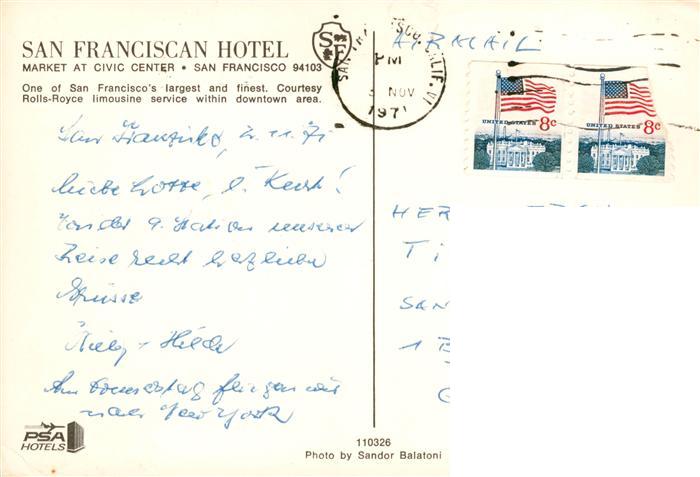 SAN FRANCISCAN HOTEL
MARKET AT CIVIC CENTER • SAN FRANCISCO 94103
One of San Francisco's largest and finest. Courtesy
Rolls-Royce limousine service within downtown area.
San Franzisko, 2.11.71
Liebe Lotte, l. Kurt!
Von der 9. Station unserer
Reise recht herzliche
Grüsse
+ Hilde
Am Donnerstag fliegen wir
nach New York
PSA
HOTELS
110326
Photo by Sandor Balatoni
SF
PM
3 NOV
1971
AIRMAIL
UNITED STATES 8c
UNITED STATES 8c
HER
TI
SAN
1 B
G